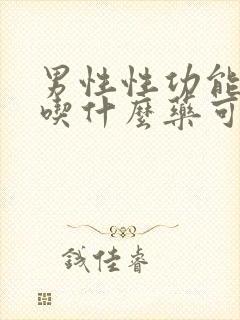 男性性功能
喫什麼藥可
钱佳睿